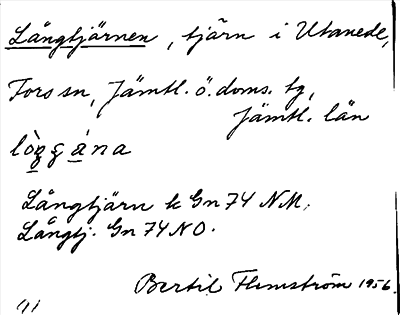 Långtjärnen, tjärn i Utanede,
Fors sn, Jämtl. ö. doms. tg,
Jämtl. län
Långtjärn k Gn 74 NM;
Långtj. Gn 74 NO.
Bertil Flemström 1956.